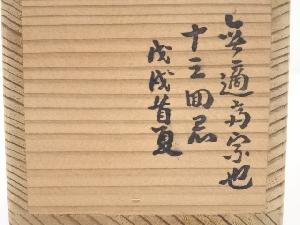 無適斎宗也
十三回忌
戊戌首夏